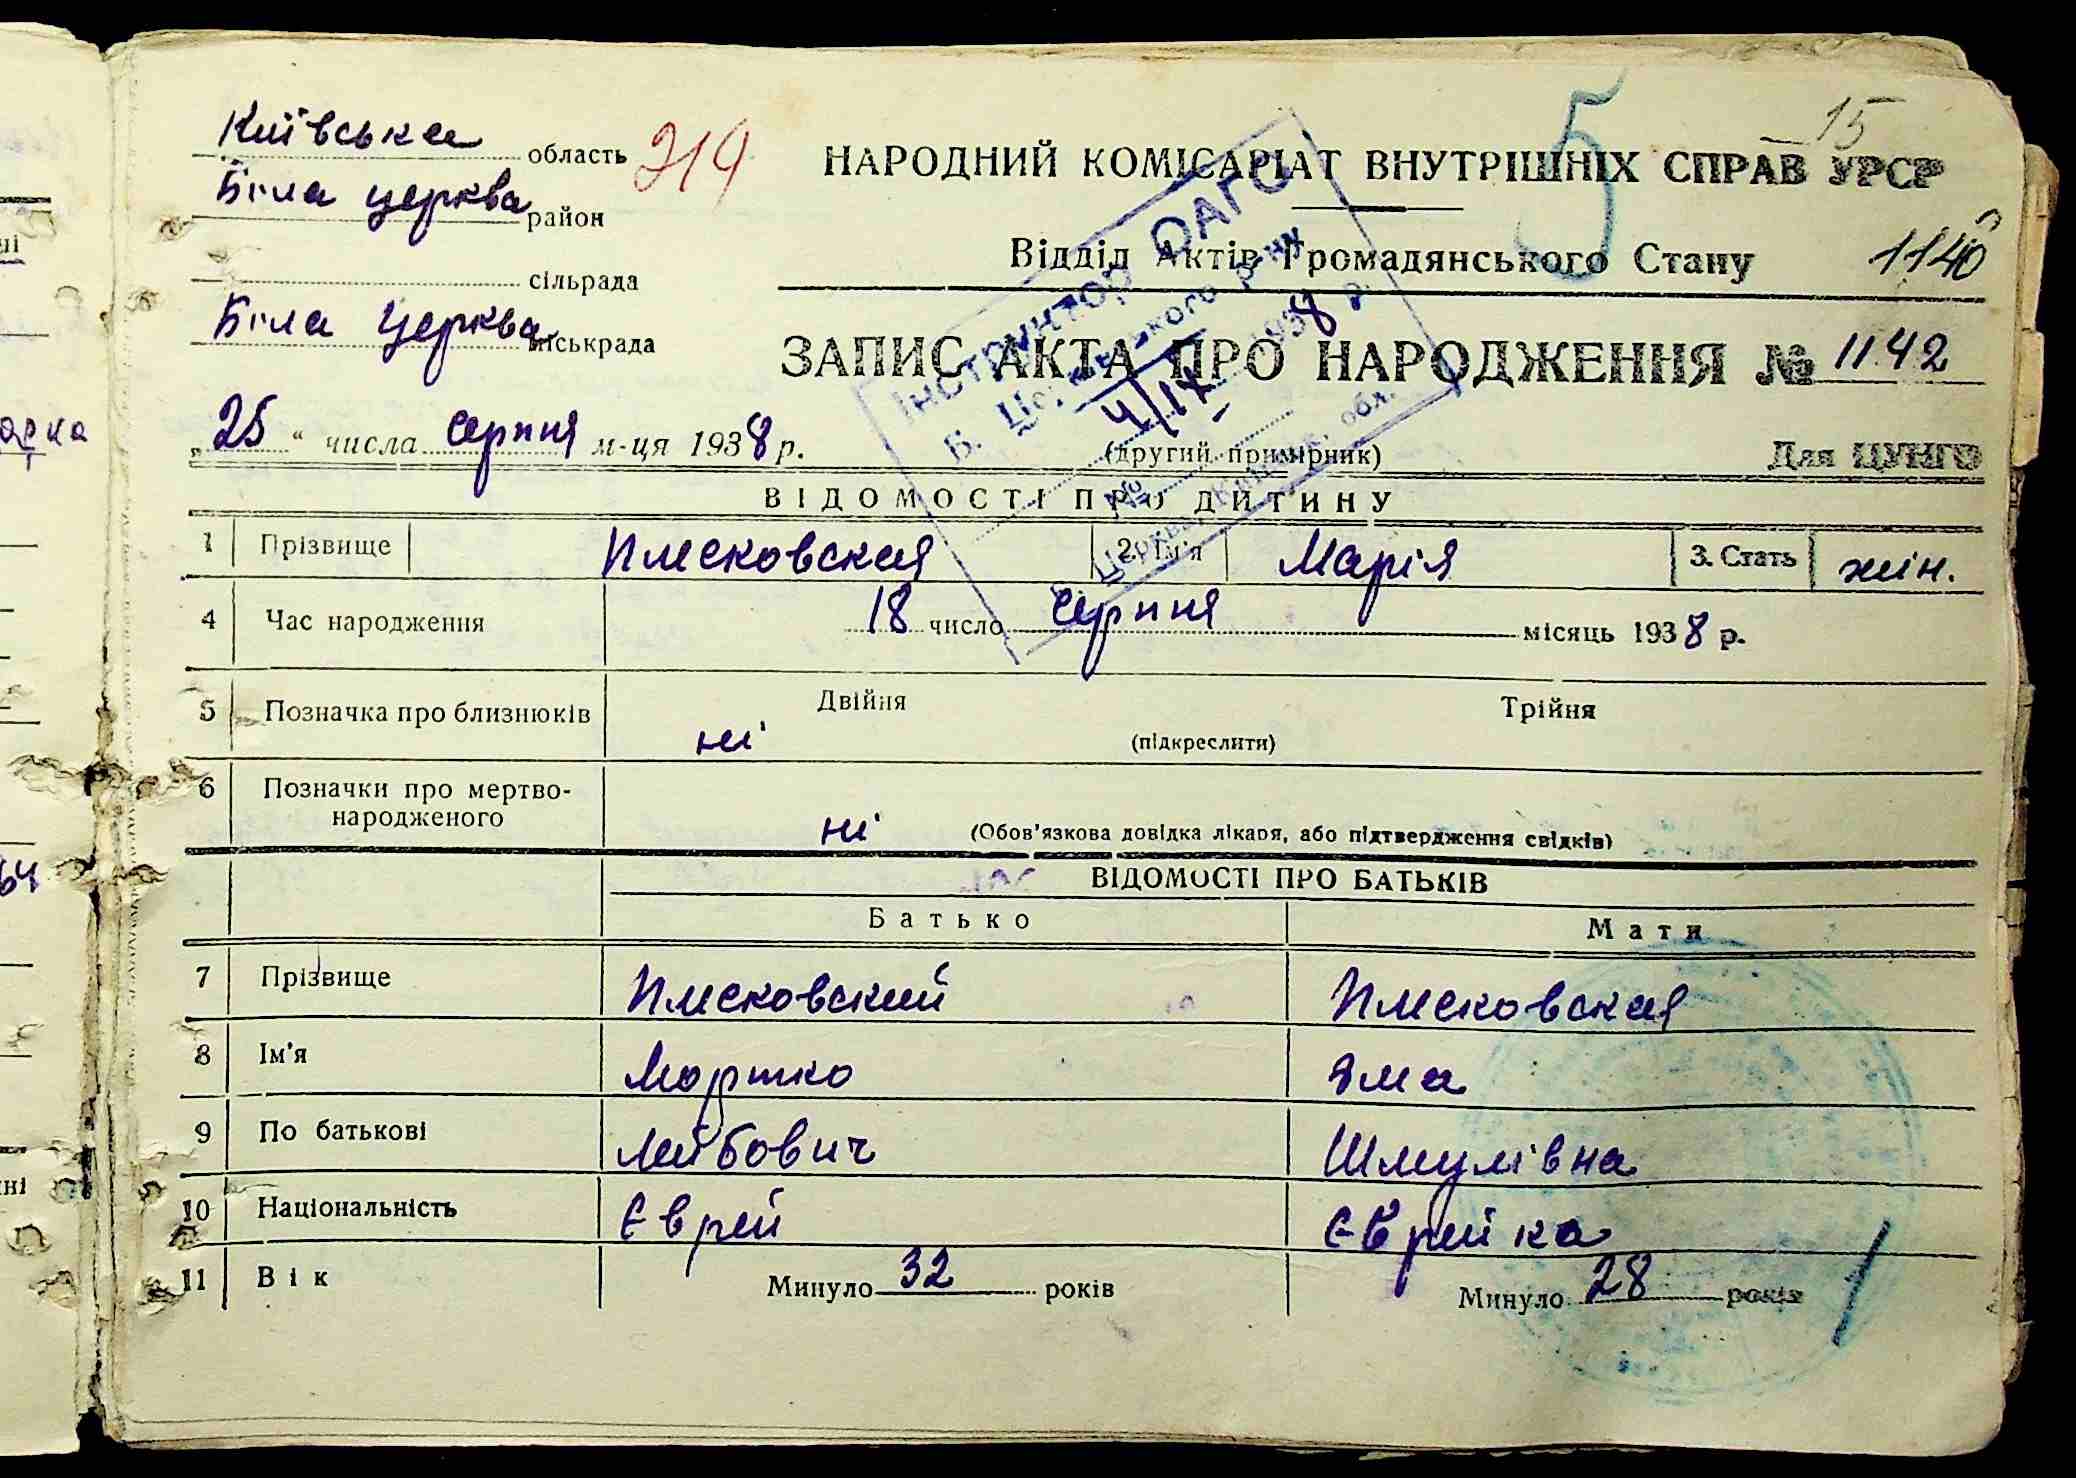 Київська область 214
Біла церква район
сільрада
Біла Церква міськрада
15
НАРОДНИЙ КОМІСАРІАТ ВНУТРІШНІХ СПРАВ УРСР
5
Відділ Актів Громадянського Стану
1140
ЗАПИС АКТА ПРО НАРОДЖЕННЯ № 1142
„25“ числа серпня м-ця 1938 р.
(другий примірник)
Для ЦУНГО
ІНСТРУКТОР ОАГС
Б. Церківського р-ну
4/IX 1938 р.
№
Б. Церква, Київськ. обл.
ВІДОМОСТІ ПРО ДИТИНУ
1 Прізвище Плисковская 2. Ім'я Марія 3. Стать жін.
4 Час народження 18 число серпня місяць 1938 р.
5 Позначка про близнюків Двійня Трійня
ні (підкреслити)
6 Позначки про мертво-
народженого ні (Обов'язкова довідка лікаря, або підтвердження свідків)
ВІДОМОСТІ ПРО БАТЬКІВ
Батько Мати
7 Прізвище Плисковский Плисковская
8 Ім'я Мортко Яма
9 По батькові Лейбович Шмулівна
10 Національність Єврей Єврейка
11 Вік Минуло 32 років Минуло 28 років